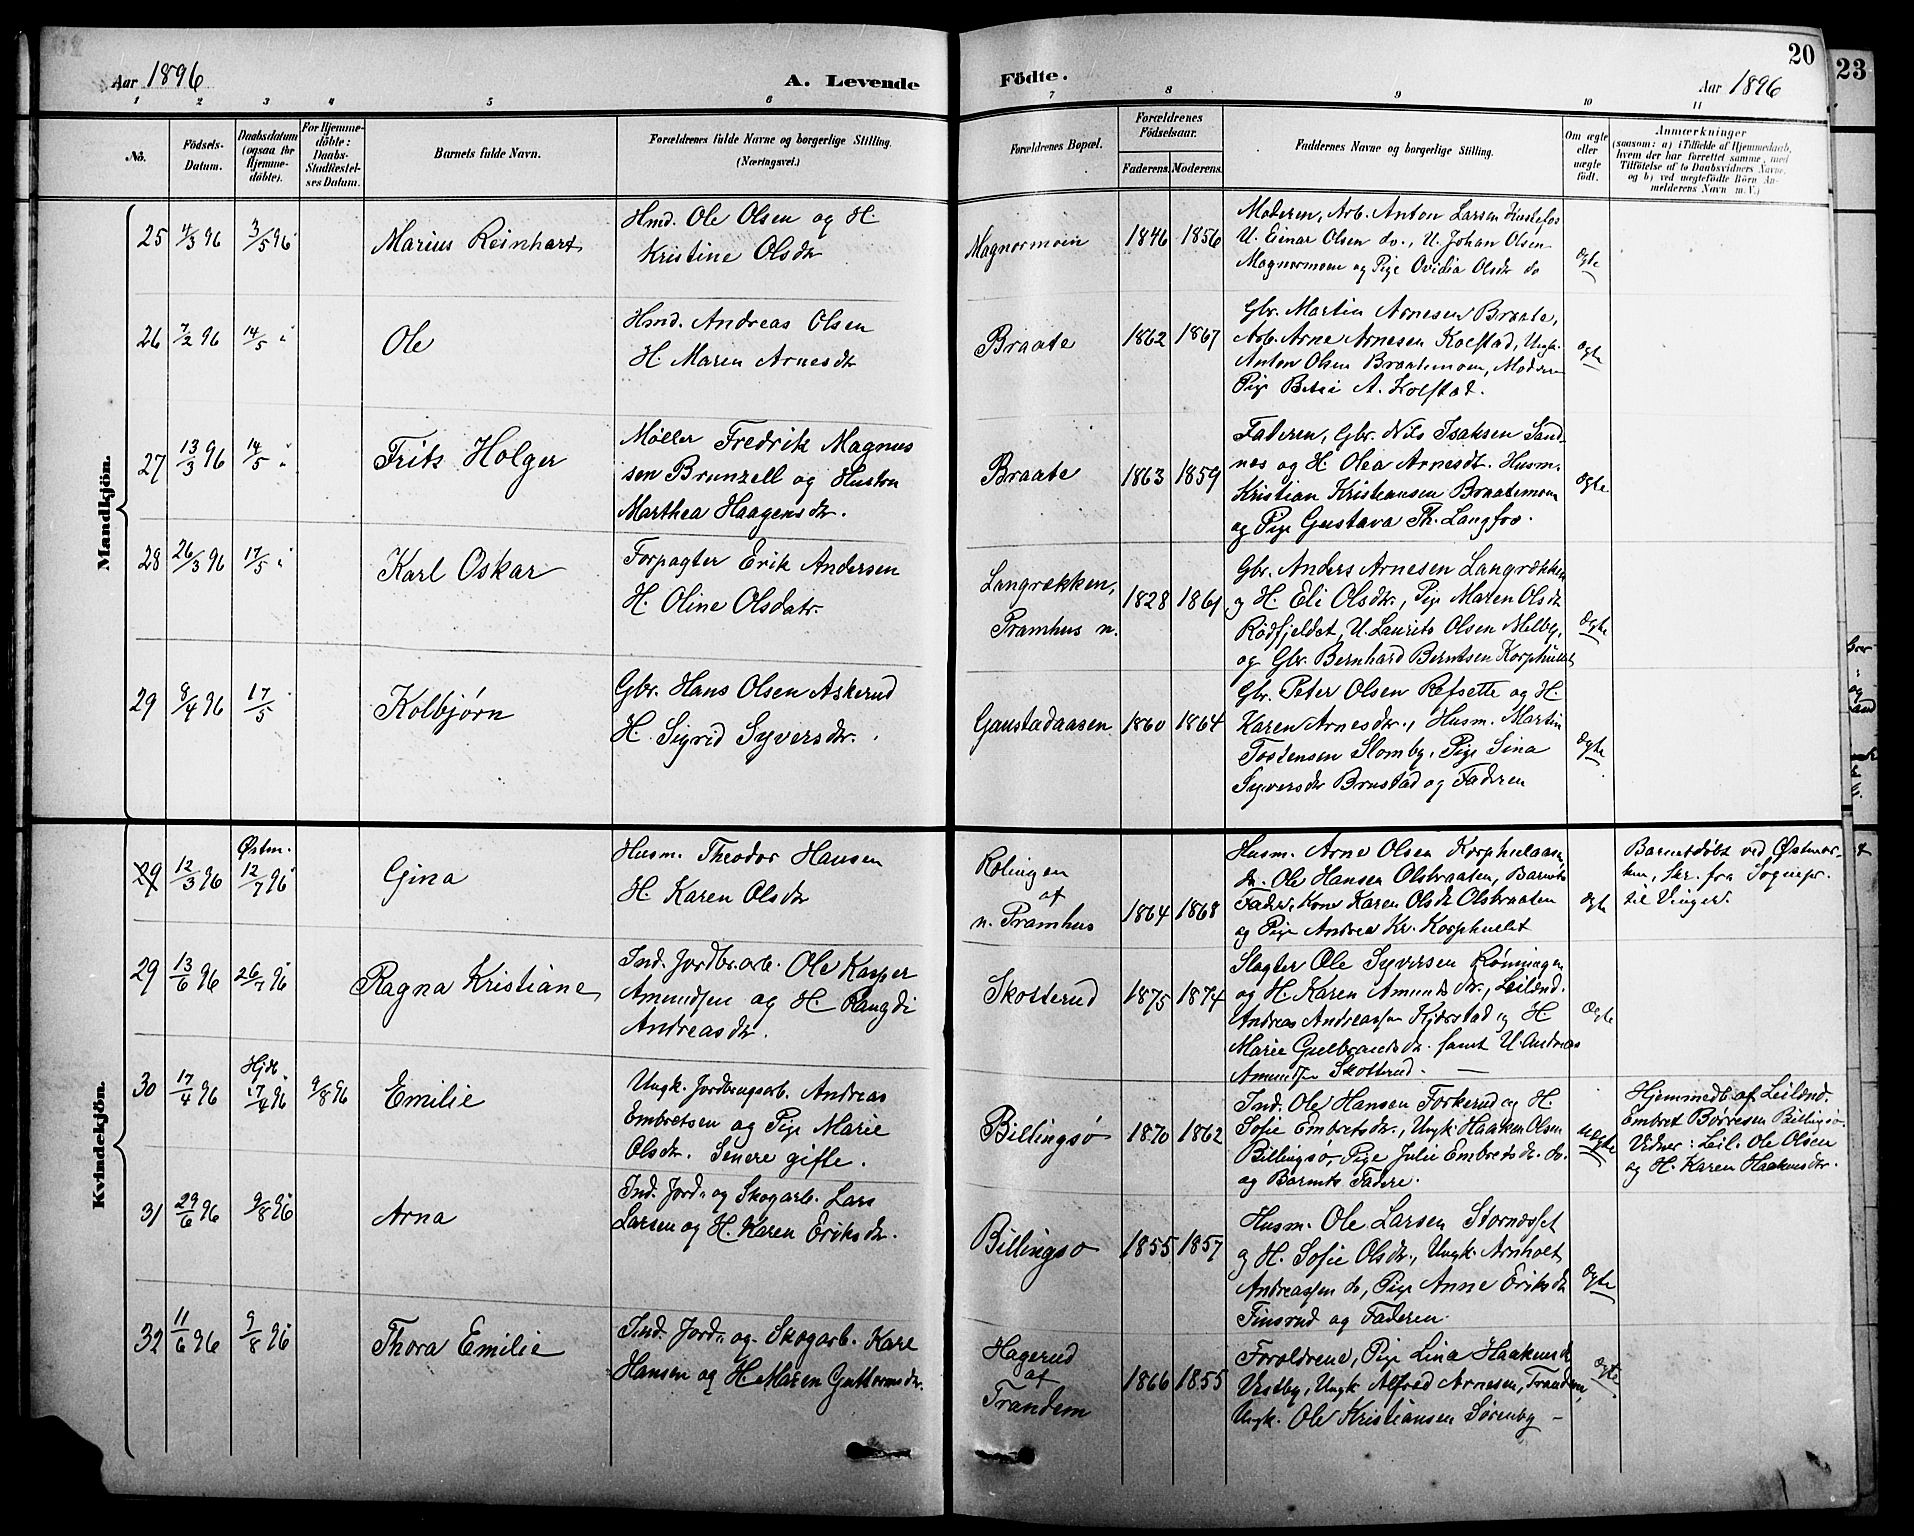 Aar 1896
A. Levende
Födte.
Aar 1896
20
23
1 2 3 4 5 6 7 8 9 10 11
No.
Födsels-
Datum.
Daabsdatum
(ogsaa for
Hjemme-
döbte).
For Hjemme-
döbte:
Daabs-
Stadfæstel-
ses Datum.
Barnets fulde Navn.
Forældrenes fulde Navne og borgerlige Stilling.
(Næringsvei.)
Forældrenes Bopæl.
Forældrenes
Födselsaar.
Faderens. Moderens.
Faddernes Navne og borgerlige Stilling.
Om ægte
eller
uægte
födt.
Anmærkninger
(saasom: a) i Tilfælde af Hjemmedaab,
hvem der har forrettet samme, med
Tilföielse af to Daabsvidners Navne,
og b) ved uægtefödte Börn An-
melderens Navn m. V.)
Mandkjön.
25 4/3 96 3/5 96
Marius Reinhart
Hmd. Ole Olsen og H.
Kristine Olsdtr
Magnormoen
1846 1856
Moderen, Arb. Anton Larsen
U. Einar Olsen do., U. Johan Olsen
Magnormoen og Pige Ovidia Olsdtr do
ægte
26 7/2 96 14/5 "
Ole
Hmd. Andreas Olsen
H. Maren Arnesdtr
Braate
1862 1867
Gbr. Martin Arnesen Braate,
Arb. Arne Arnesen Kolstad, Ungk.
Anton Olsen Braatemoen, Moderen
Pige Betsi A. Kolstad.
ægte
27 13/3 96 14/5 "
Frits Holger
Møller Fredrik Magnus
sen Brunzell og Hustru
Marthea Haagensdtr.
Braate
1863 1859
Faderen, Gbr. Nils Isaksen Sand-
nes og H. Olea Arnesdtr. Husm.
Kristian Kristiansen Braatemoen
og Pige Gustava Th. Langfos.
ægte
28 26/3 96 17/5 "
Karl Oskar
Forpagter Erik Andersen
H. Oline Olsdatr.
Langrækken,
Pramhus n.
1828 1861
Gbr. Anders Arnesen Langrækken
og H. Eli Olsdtr., Pige Maren Olsdtr
Rødfjeldet, U. Laurits Olsen Melby,
og Gbr. Bernhard Berntsen Korphullet
ægte
29 8/4 96 17/5
Kolbjørn
Gbr. Hans Olsen Askerud
H. Sigrid Syversdtr.
Gaustadaasen
1860 1864
Gbr. Peter Olsen Refsette og H.
Karen Arnesdtr., Husm. Martin
Tostensen Slomby, Pige Sina
Syversdtr Brustad og Faderen
ægte
Kvindekjön.
29 12/3 96 Østm. 12/7 96
Gina
Husm. Theodor Hansen
H. Karen Olsdtr
Rolingen
af
n. Pramhus
1864 1868
Husm. Arne Olsen Korphulaasen
do. Ole Hansen Olsbraaten, Barnets
Fader, Kone Karen Olsdtr Olsbraaten
og Pige Andrea Kr. Korphullet
ægte
Barnet døbt ved Østmar-
ken, Skr. fra Sognepr.
til Vinger.
29 13/6 96 26/7 96
Ragna Kristiane
Ind. Jordbr.arb. Ole Kasper
Amundsen og H. Rangdi
Andreasdtr.
Skotterud
1875 1874
Slagter Ole Syversen Rønningen
og H. Karen Amundsdtr., Leilænd.
Andreas Andreassen Kjærstad og H.
Marie Gulbrandsdtr. samt U. Andreas
Amundsen Skotterud.
ægte
30 17/4 96 Hjdt. 17/4 96 9/8 96
Emilie
Ungk. Jordbrugsarb. Andreas
Embretsen og Pige Marie
Olsdtr. Senere gifte.
Billingsø
1870 1862
Ind. Ole Hansen Forkerud og H.
Sofie Embretsdtr., Ungk. Haaken Olsen
Billingsø, Pige Julie Embretsdtr. do.
og Barnets Fader.
uægte
Hjemmedb. af Leilænd.
Embret Børresen Billingsø.
Vidner: Leil. Ole Olsen
og H. Karen Haakensdtr.
31 29/6 96 9/8 96
Arna
Ind. Jord- og Skogarb. Lars
Larsen og H. Karen Eriksdtr.
Billingsø
1855 1857
Husm. Ole Larsen Stornæsset
og H. Sofie Olsdtr., Ungk. Arnholt
Andreassen do, Pige Anne Eriksdtr
Finsrud og Faderen.
ægte
32 11/6 96 9/8 96
Thora Emilie
Ind. Jord- og Skogarb. Karl
Hansen og H. Maren Guttormsdtr.
Hagerud
af
Trandem
1866 1855
Forældrene, Pige Lina Haakensdtr
Vestby, Ungk. Alfred Arnesen, Trandem,
Ungk. Ole Kristiansen Sørenby
ægte